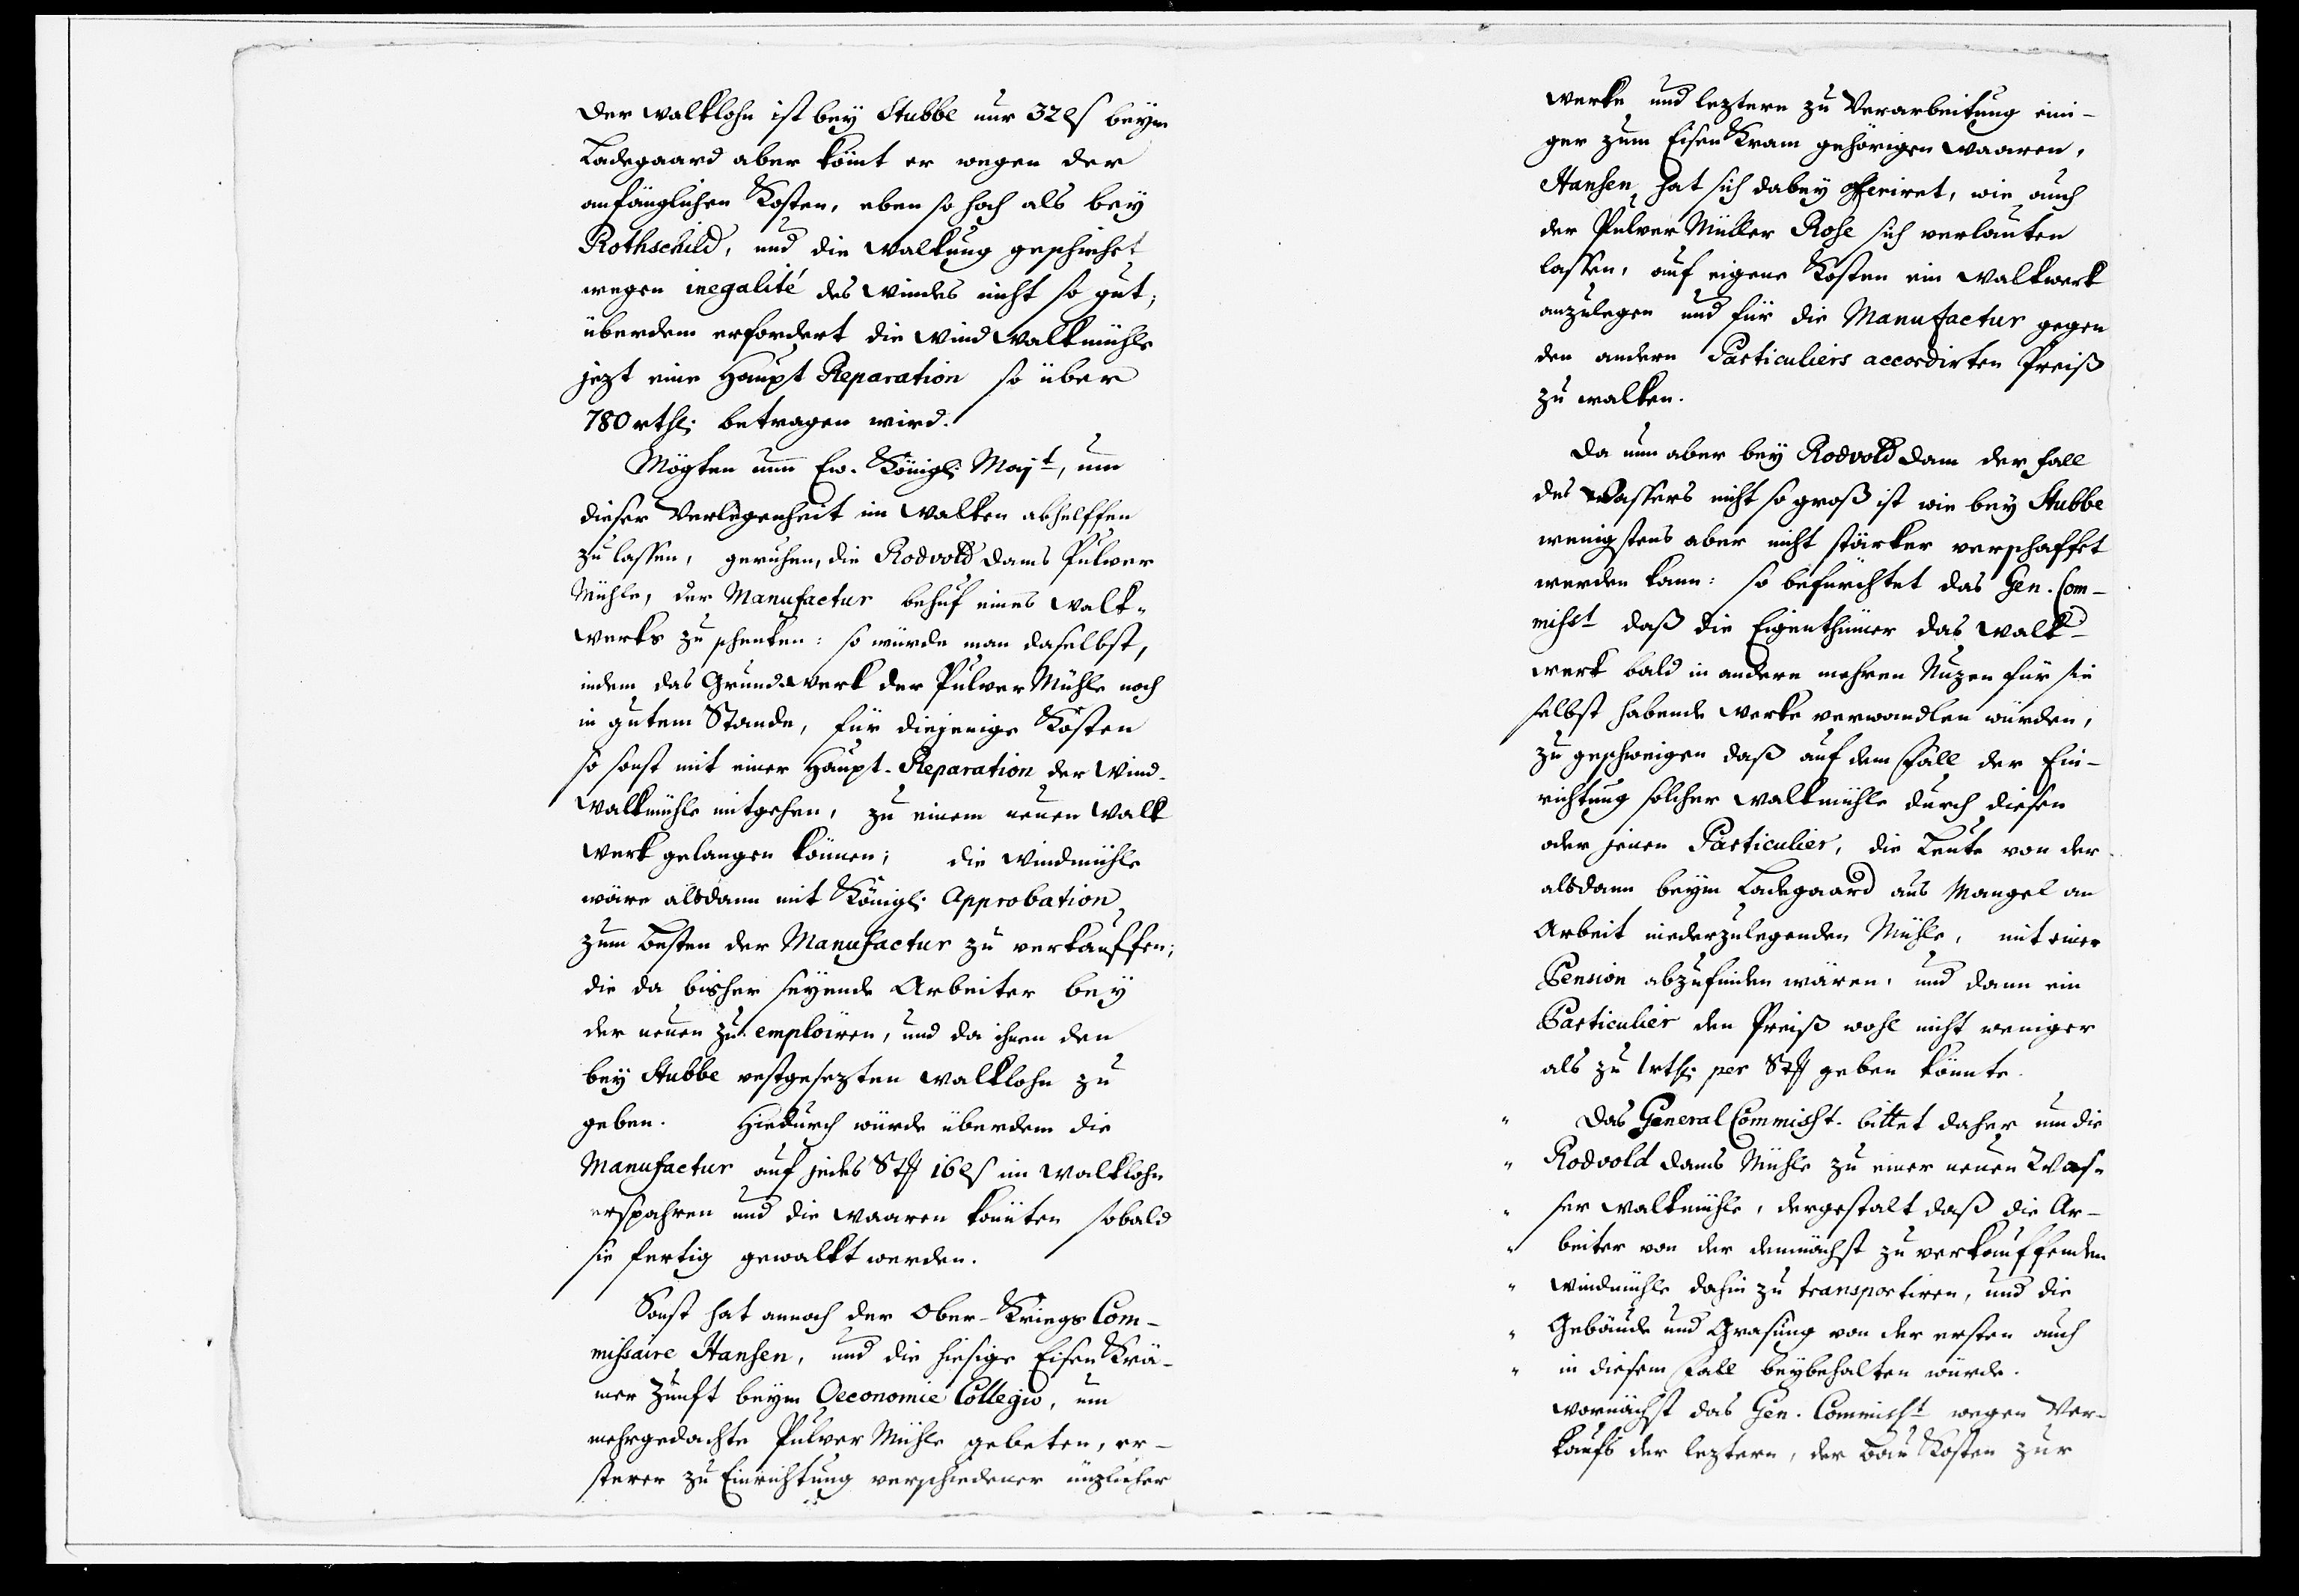 Der Walklohn ist bey Stubbe nur 32 ls beym
Ladegaard aber kömt er wegen der
anfänglichen Kosten, eben so hoch als bey
Rothschild, und die Walkung geschiehet
wegen inegalité des Windes nicht so gut;
überdem erfordert die Wind Walkmühle
jezt eine Haupt Reparation so über
780 rthl: betragen wird.
Mögten nun Ew. Königl: Majt, um
dieser Verlegenheit im Walken abhelffen
zu lassen, geruhen, die Rodvold Dams Pulver
Mühle, der Manufactur behuf eines Walk-
werks zu schenken: so würde man daselbst,
indem das Grundwerk der Pulver Mühle noch
in gutem Stande, für diejenige Kosten
so sonst mit einer Haupt-Reparation der Wind-
Walkmühle mitgehen, zu einem neuen Walk
Werk gelangen können; die Windmühle
wäre alsdann mit Königl: Approbation
zum Besten der Manufactur zu verkauffen;
die da bisher seyende Arbeiter bey
der neuen zu emploiren, und da ihnen den
bey Stubbe vestgesezten Walklohn zu
geben. Hiedurch würde überdem die
Manufactur auf jedes Stk 16 ls im Walklohn
erspahren und die Waaren könten sobald
sie fertig gewalkt werden.
Sonst hat annoch der Ober-Kriegs Com-
missaire Hansen, und die hiesige Eisen Krä-
mer Zunft beym Oeconomie Collegio, um
mehrgedachte Pulver Mühle gebeten, er-
sterer zu Einrichtung verschiedener nüzlicher
Werke und leztere zu Verarbeitung eini-
ger zum Eisen Kram gehörigen Waaren,
Hansen hat sich dabey offeriret, wie auch
der Pulver Müller Rose sich verlauten
lassen, auf eigene Kosten ein Walkwerk
anzulegen und für die Manufactur gegen
den andern Particuliers accordirten Preiß
zu walken.
Da nun aber bey Rodvold Dam der Fall
des Wassers nicht so groß ist wie bey Stubbe
wenigstens aber nicht stärker verschaffet
werden kann: so befürchtet das Gen. Com-
misst daß die Eigenthümer das Walk-
werk bald in andere mehren Nuzen für sie
selbst habende Werke verwandlen würden,
zu geschweigen daß auf dem Fall der Ein-
richtung solcher Walkmühle durch diesen
oder jenen Particulier, die Leute von der
alsdann beym Ladegaard aus Mangel an
Arbeit niederzulegenden Mühle, mit einer
Pension abzufinden wären, und dann ein
Particulier den Preiß wohl nicht weniger
als zu 1 rthl: per Stk geben könnte.
" Das General Commisst. bittet daher um die
" Rodvold Dams Mühle zu einer neuen Was-
" ser Walkmühle, dergestalt daß die Ar-
" beiter von der demnächst zu verkauffenden
" Windmühle dahin zu transportiren, und die
" Gebäude und Grasung von der ersten auch
" in diesem Fall beybehalten würde.
Wornächst das Gen. Commisst wegen Ver-
kaufs der leztern, der Bau Kosten zur